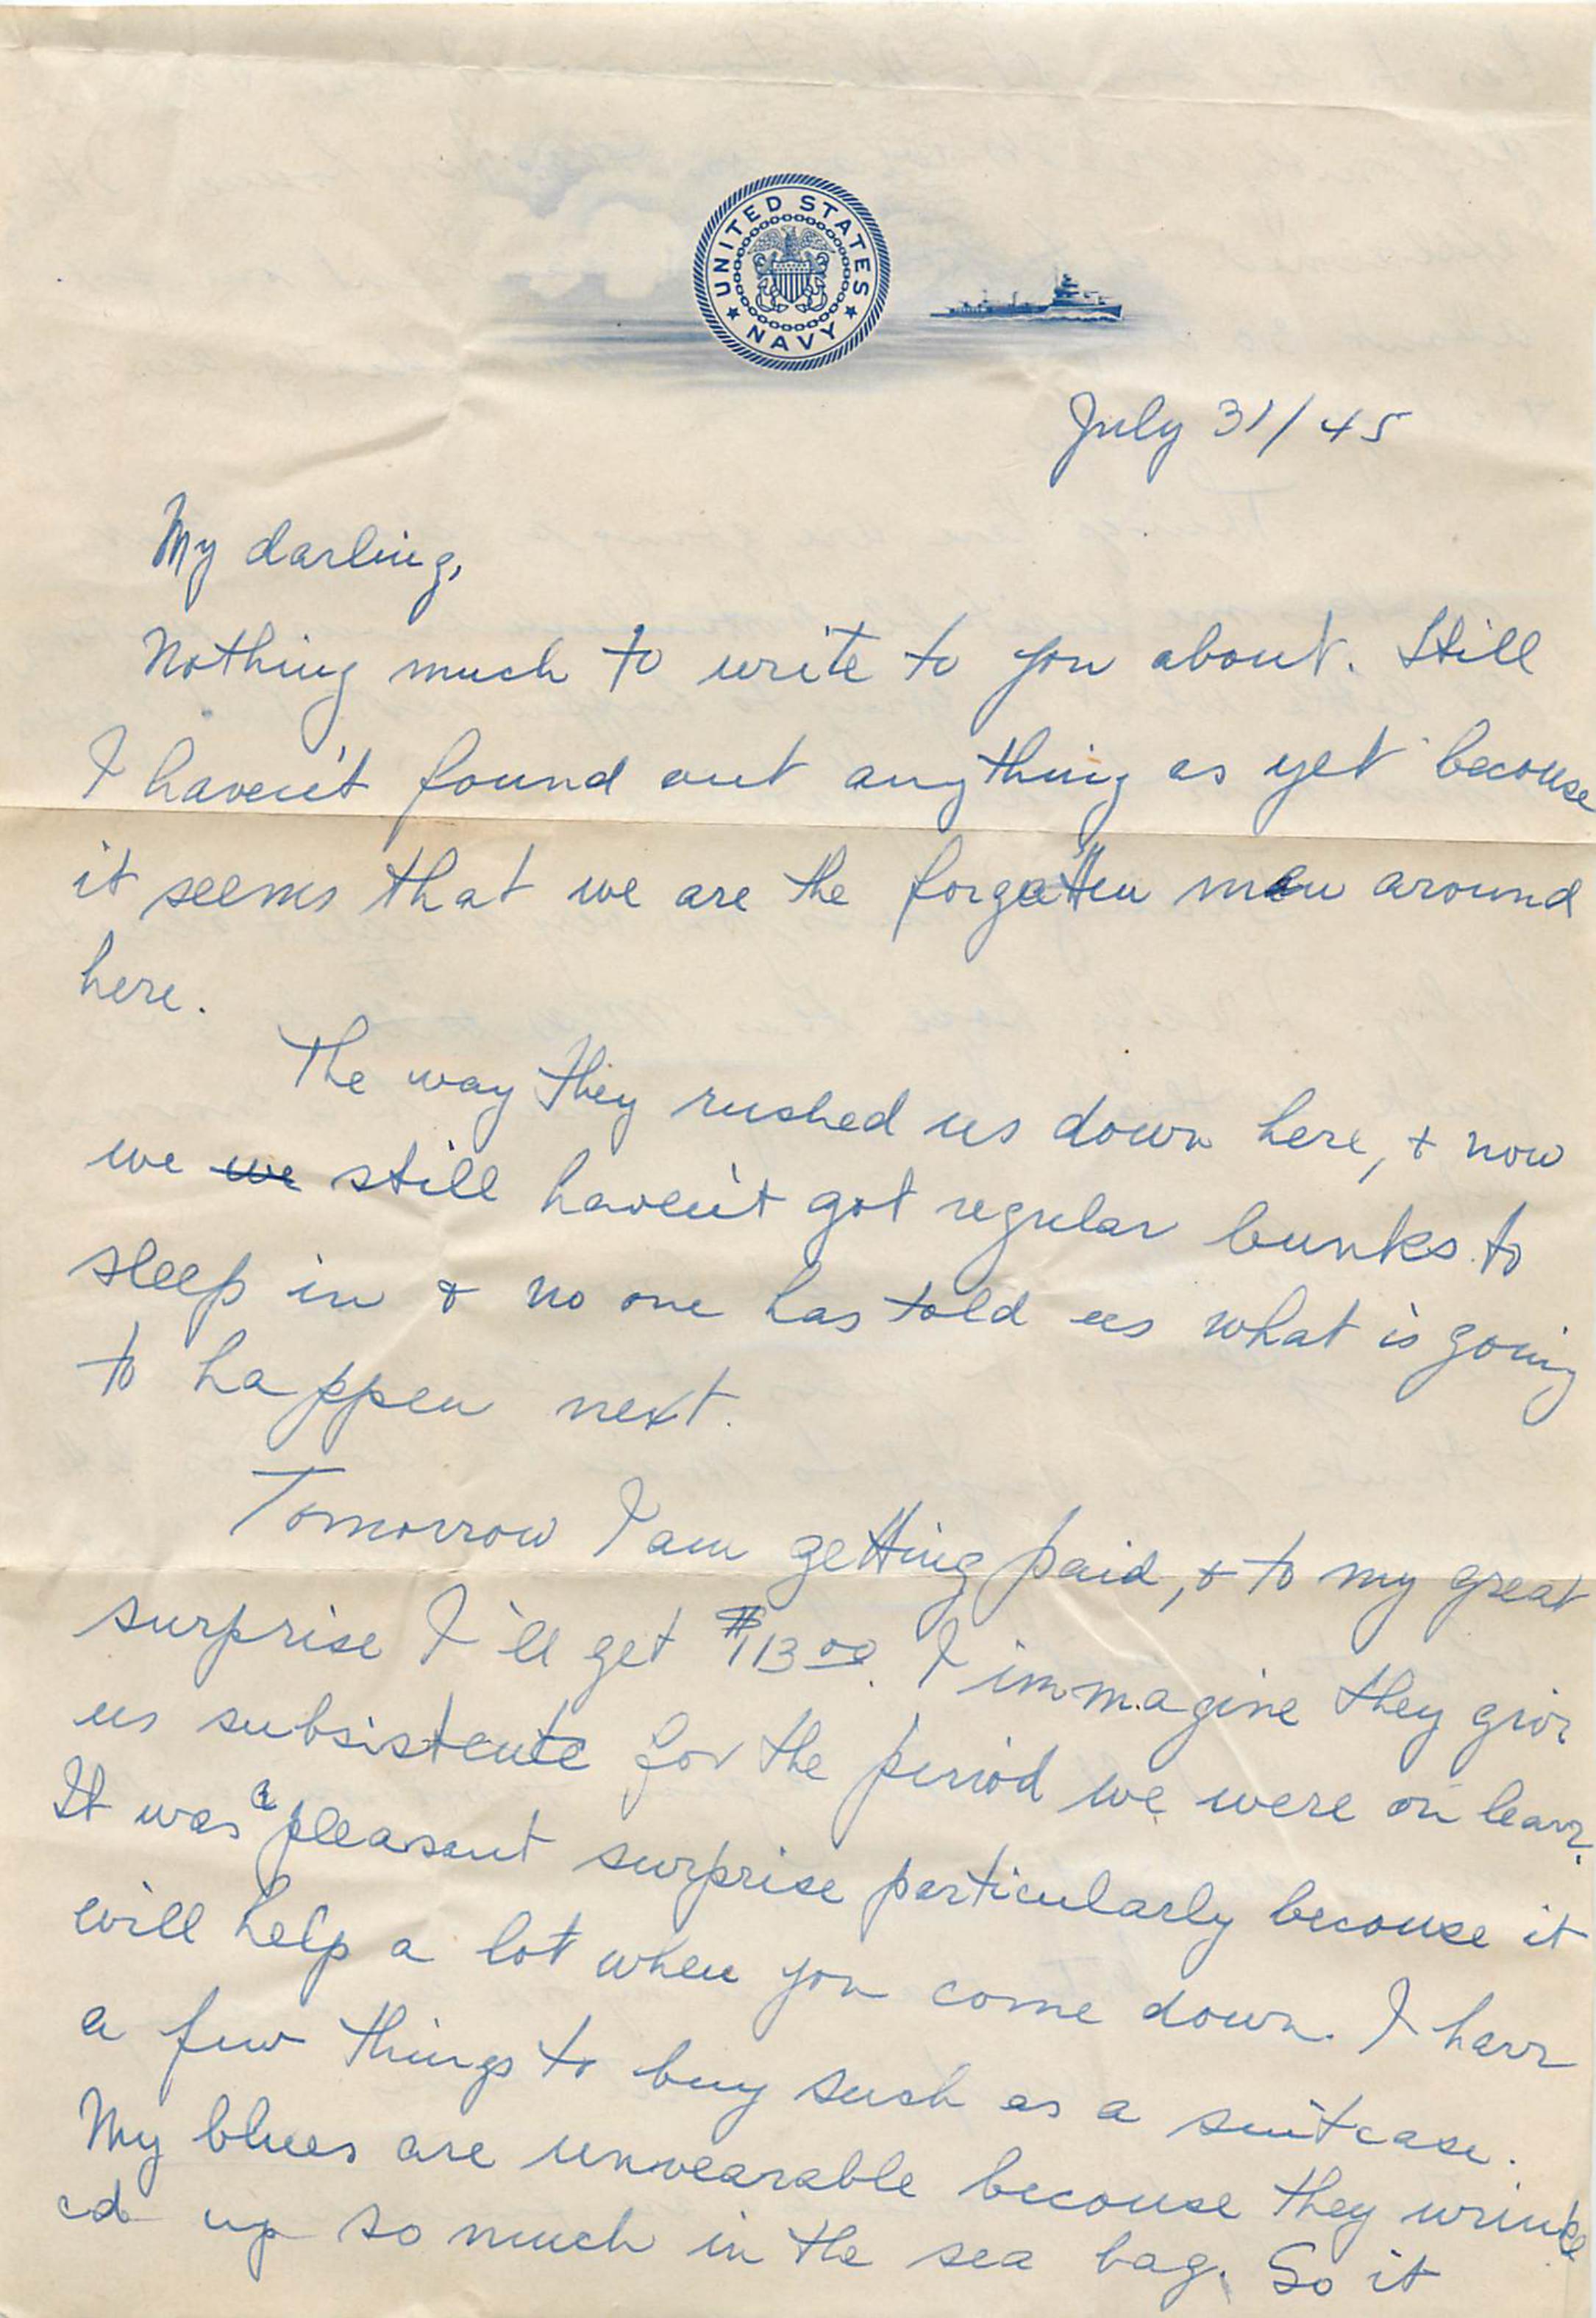 UNITED STATES NAVY
July 31/45
My darling,
Nothing much to write to you about. Still
I haven't found out anything as yet because
it seems that we are the forgotten men around
here.
The way they rushed us down here, & now
we we still haven't got regular bunks to
sleep in & no one has told us what is going
to happen next.
Tomorrow I am getting paid, & to my great
surprise I'll get $113.00. I immagine they give
us subsistente for the period we were on leave.
It was a pleasant surprise particularly because it
will help a lot when you come down. I have
a few things to buy such as a suitcase.
My blues are unwearable because they wrinkl
ed up so much in the sea bag. So it